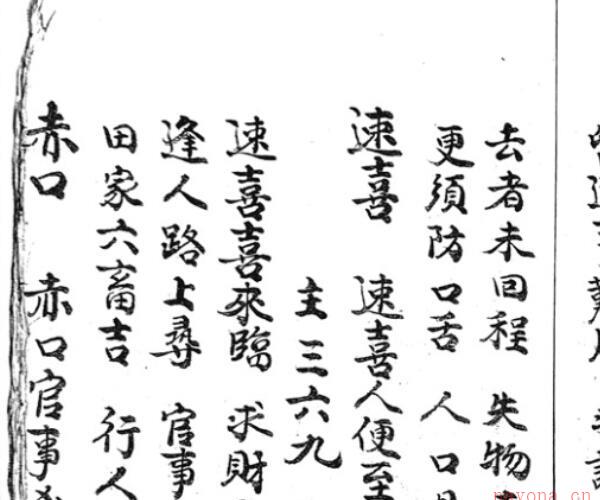 去者未回程 失物
更須防口舌 人口
速喜 速喜人便至
主三六九
速喜喜來臨 求財
逢人路上尋 官事
田家六畜吉 行人
赤口 赤口官事